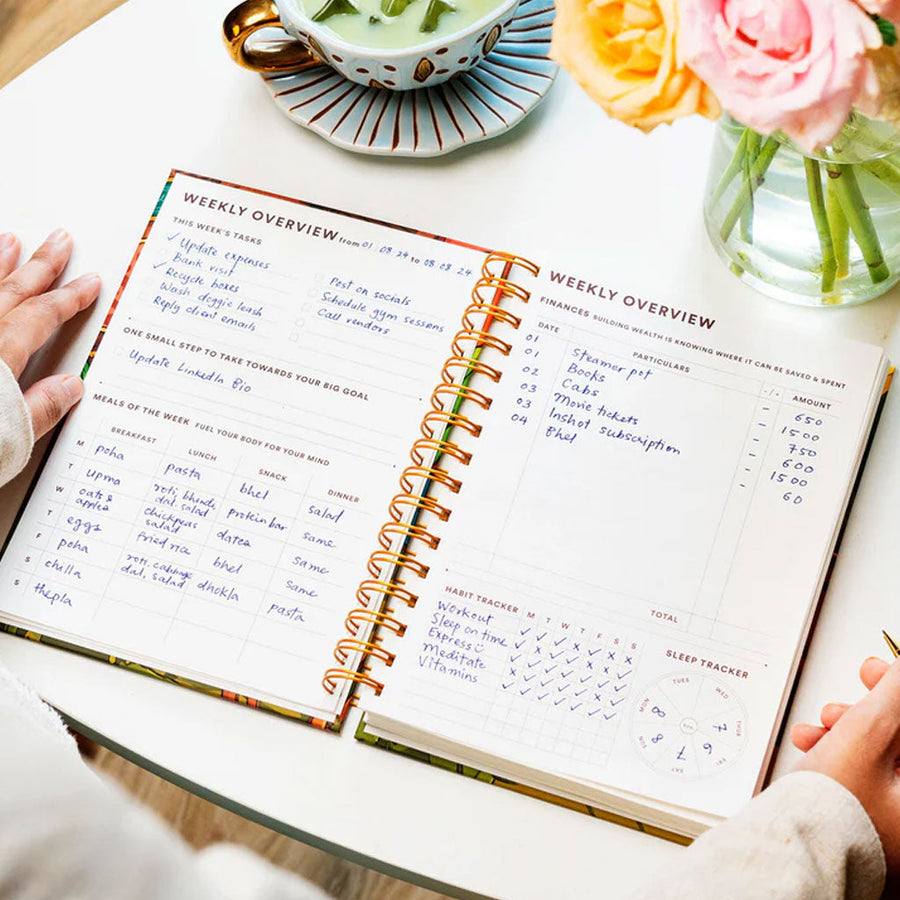 WEEKLY OVERVIEW from 01 08 24 to 08 08 24
THIS WEEK'S TASKS
✓ Update expenses
Bank visit
✓ Recycle boxes
Wash doggie leash
Reply client emails
Post on socials
Schedule gym sessions
Call vendors
ONE SMALL STEP TO TAKE TOWARDS YOUR BIG GOAL
Update LinkedIn Bio
MEALS OF THE WEEK FUEL YOUR BODY FOR YOUR MIND
BREAKFAST LUNCH SNACK DINNER
M poha pasta bhel salad
T Upma roti, bhindi, dal, salad protein bar same
W oats & apples chickpeas salad dates same
T eggs fried rice bhel same
F poha roti, cabbage dal, salad dhokla pasta
S chilla
S thepla
WEEKLY OVERVIEW
FINANCES BUILDING WEALTH IS KNOWING WHERE IT CAN BE SAVED & SPENT
DATE PARTICULARS -/+ AMOUNT
01 Steamer pot - 650
01 Books - 1500
02 Cabs - 750
03 Movie tickets - 600
03 Inshot subscription - 1500
04 Bhel - 60
TOTAL
HABIT TRACKER M T W T F S S
Workout
Sleep on time
Express
Meditate
Vitamins
SLEEP TRACKER
MON TUES WED THUR FRI SAT SUN
8 7 6 7 8